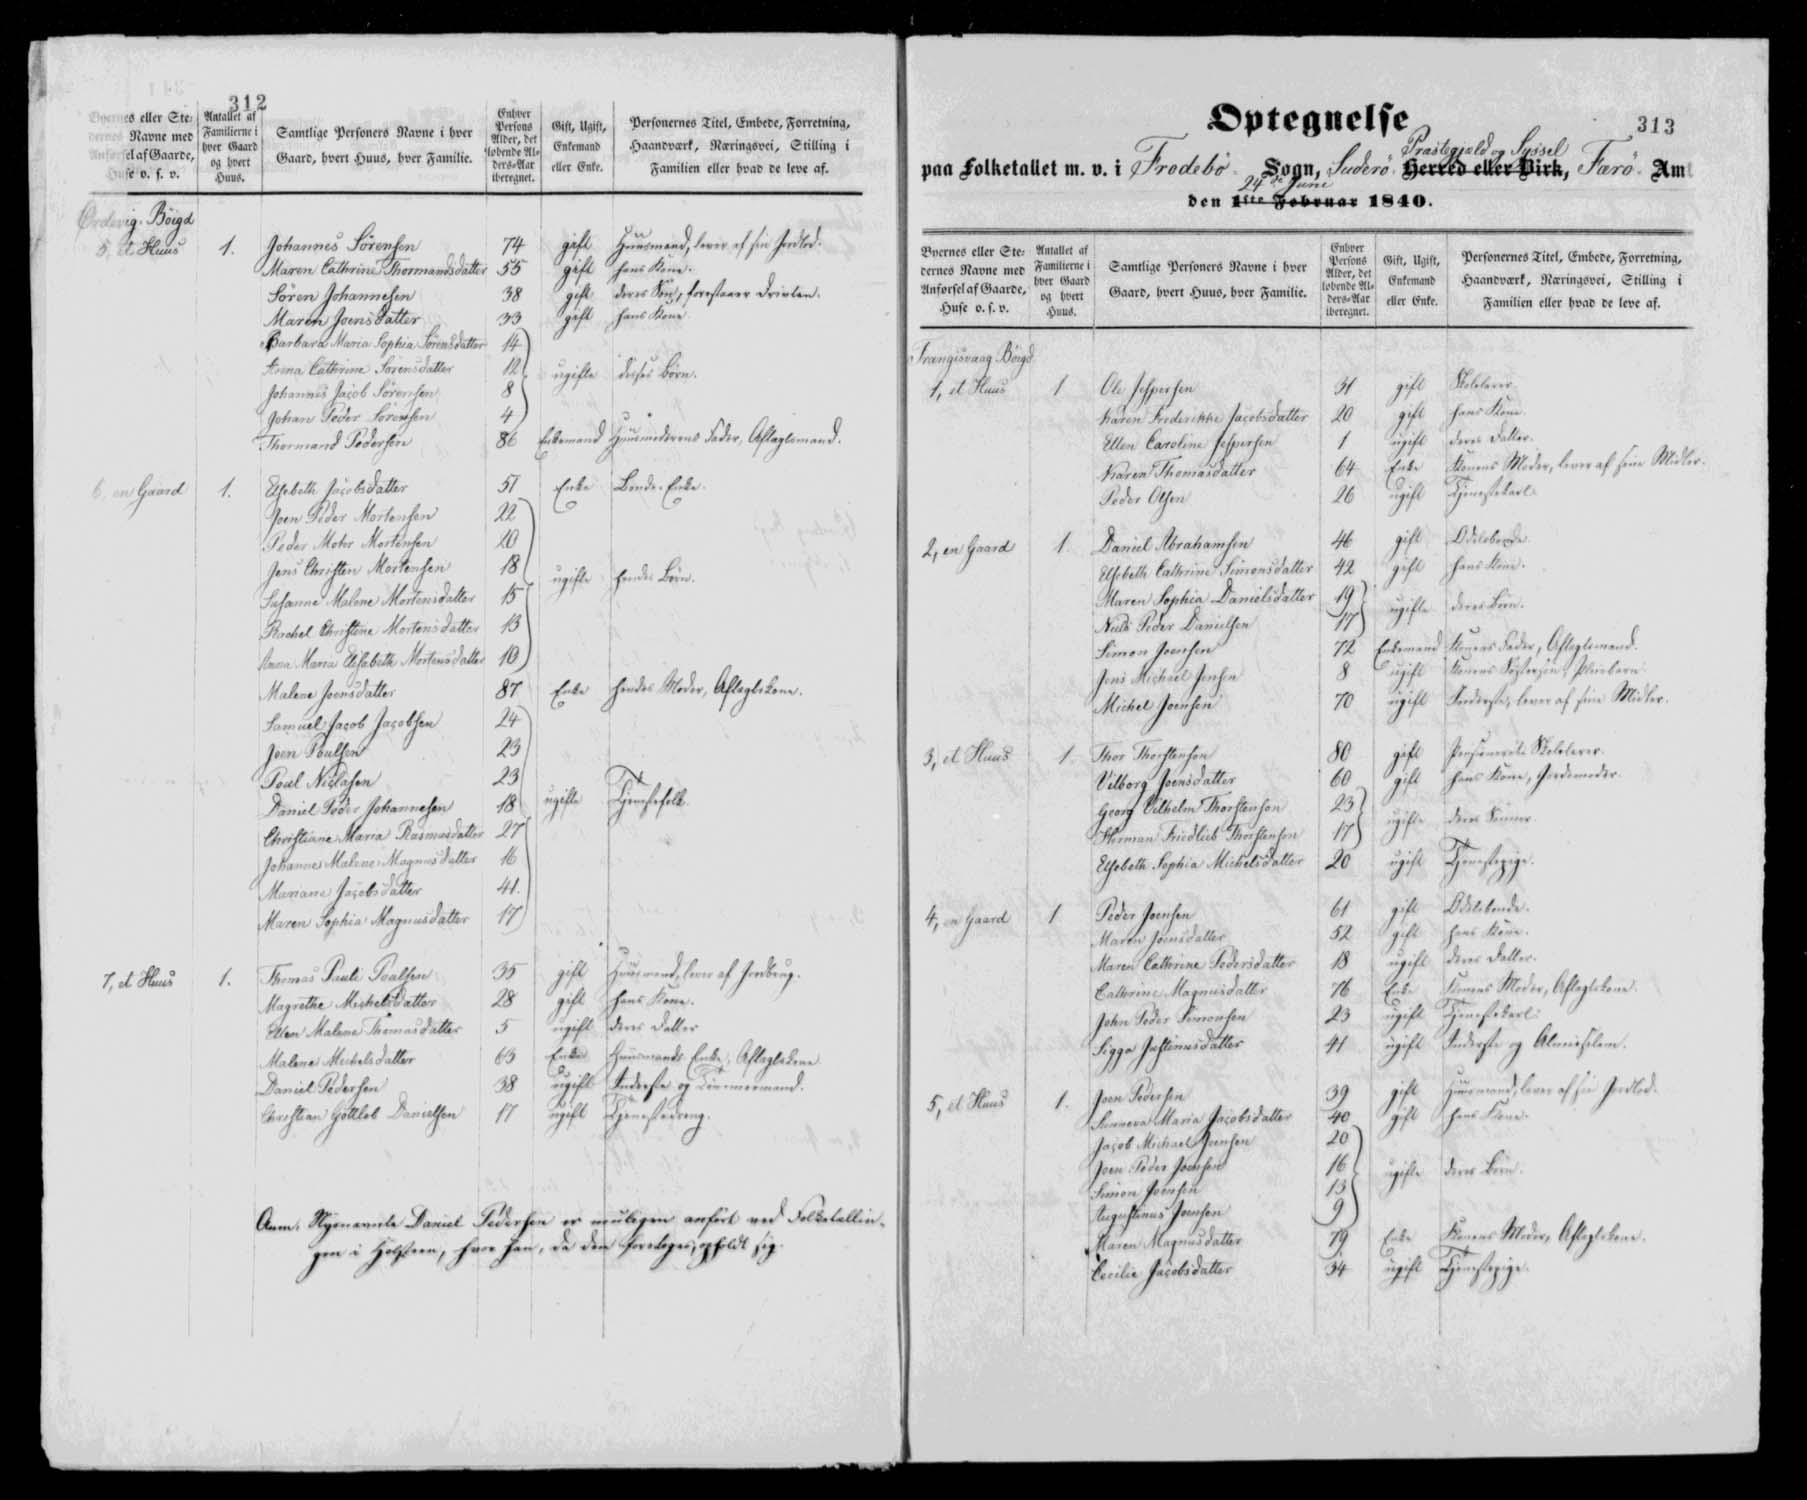 312
Byernes eller Ste-
dernes Navne med
Anførsel af Gaarde,
Huse o. s. v.
Antallet af
Familierne i
hver Gaard
og hvert
Huus.
Samtlige Personers Navne i hver
Gaard, hvert Huus, hver Familie.
Enhver
Persons
Alder, det
løbende Al-
ders-Aar
iberegnet.
Gift, Ugift,
Enkemand
eller Enke.
Personernes Titel, Embede, Forretning,
Haandværk, Næringsvei, Stilling i
Familien eller hvad de leve af.
Ordevig Böigd
5, et Huus 1. Johannes Sörensen 74 gift Huusmand, lever af sin Jordlod.
Maren Cathrine Thormandsdatter 55 gift hans Kone.
Sören Johannesen 38 gift deres Sön, forestaaer Driften.
Maren Joensdatter 33 gift hans Kone.
Barbara Maria Sophia Sörensdatter 14
Anna Cathrine Sörensdatter 12 ugifte disses Börn.
Johannes Jacob Sörensen 8
Johan Peder Sörensen 4
Thormand Pedersen 86 Enkemand Huusmoderens Fader, Aftagtsmand.
6, en Gaard 1. Elsebeth Jacobsdatter 51 Enke Bonde-Enke.
Joen Peder Mortensen 22
Peder Mohr Mortensen 20
Jens Christen Mortensen 18 ugifte hendes Börn.
Susanne Malene Mortensdatter 15
Rachel Christine Mortensdatter 13
Anna Maria Elsebeth Mortensdatter 10
Malene Joensdatter 87 Enke hendes Moder, Aftagtskone.
Samuel Jacob Jacobsen 24
Joen Poulsen 23
Poul Niclasen 23
Daniel Peder Johannesen 18 ugifte Tjenestefolk.
Christiane Maria Rasmusdatter 27
Johanne Malene Magnusdatter 16
Mariane Jacobsdatter 41.
Maren Sophia Magnusdatter 17
7, et Huus 1. Thomas Pauli Poulsen 35 gift Huusmand, lever af Jordbrug.
Magrethe Michelsdatter 28 gift hans Kone.
Ellen Malene Thomasdatter 5 ugift deres Datter
Malene Michelsdatter 63 Enke Huusmands Enke, Aftagtskone
Daniel Pedersen 38 ugift Inderste og Tömmermand.
Christian Gottlob Danielsen 17 ugift Tjenestedreng.
Anm. Nysnævnte Daniel Pedersen er muligen anfört ved Folketællin-
gen i Holsteen, hvor han, da den foretoges, opholdt sig.
313
Optegnelse
Præstegjæld og Syssel
paa Folketallet m. v. i Frodebö Sogn, Suderö Herred eller Birk, Færö Amt
24de Juni
den 1ste Februar 1840.
Byernes eller Ste-
dernes Navne med
Anførsel af Gaarde,
Huse o. s. v.
Antallet af
Familierne i
hver Gaard
og hvert
Huus.
Samtlige Personers Navne i hver
Gaard, hvert Huus, hver Familie.
Enhver
Persons
Alder, det
løbende Al-
ders-Aar
iberegnet.
Gift, Ugift,
Enkemand
eller Enke.
Personernes Titel, Embede, Forretning,
Haandværk, Næringsvei, Stilling i
Familien eller hvad de leve af.
Trangisvaag Böigd
1, et Huus 1 Ole Jespersen 31 gift Skolelærer
Karen Frederikke Jacobsdatter 20 gift hans Kone.
Ellen Caroline Jespersen 1 ugift deres Datter.
Karen Thomasdatter 64 Enke Konens Moder, lever af sine Midler.
Peder Olsen 26 ugift Tjenestekarl
2, en Gaard 1. Daniel Abrahamsen 46 gift Odelsbonde.
Elsebeth Cathrine Simonsdatter 42 gift hans Kone.
Maren Sophia Danielsdatter 19 ugifte deres Börn.
Niels Peder Danielsen 17
Simon Joensen 72 Enkemand Konens Fader, Aftagtsmand.
Jens Michael Jensen 8 ugift Konens Söstersön, Pleiebarn
Michel Joensen 70 ugift Inderste, lever af sine Midler.
3, et Huus 1 Thor Thorstensen 80 gift Pensioneret Skolelærer.
Vilborg Joensdatter 60 gift hans Kone, Jordemoder.
Georg Vilhelm Thorstensen 23 ugifte deres Sönner.
Herman Friedlieb Thorstensen 17
Elsebeth Sophia Michelsdatter 20 ugift Tjenestepige.
4, en Gaard 1 Peder Joensen 61 gift Odelsbonde.
Maren Joensdatter 52 gift hans Kone.
Maren Cathrine Pedersdatter 18 ugift deres Datter.
Cathrine Magnusdatter 76 Enke Konens Moder, Aftagtskone.
John Peder Simonsen 23 ugift Tjenestekarl
Sigga Justinusdatter 41 ugift Inderste og Almisselem.
5, et Huus 1. Joen Pedersen 39 gift Huusmand, lever af sin Jordlod.
Sunneva Maria Jacobsdatter 40 gift hans Kone.
Jacob Michael Joensen 20
Joen Peder Joensen 16 ugifte deres Börn.
Simon Joensen 13
Augustinus Joensen 9
Maren Magnusdatter 79 Enke Konens Moder, Aftagtskone.
Cecilie Jacobsdatter 34 ugift Tjenestepige.